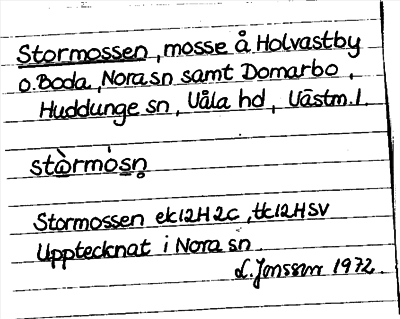 Stormossen, mosse å Holvastby
o. Boda, Nora sn samt Domarbo,
Huddunge sn, Våla hd, Västm. l.
stòrmósn̥
Stormossen ek 12H2c, tk 12HSV
Upptecknat i Nora sn.
L. Jonsson 1972.